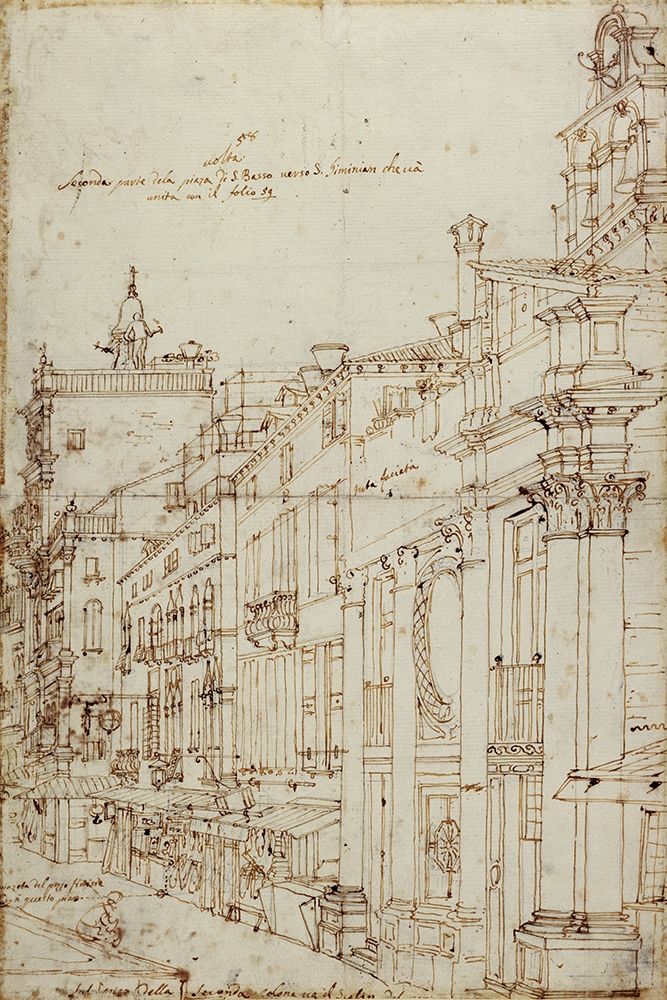 58
volta
Seconda parte dela piaza di S. Basso verso S. Giminian che va
unita con il folio 59
tuta faciata
del pozo finisse
a questo piano
della Seconda colona va il